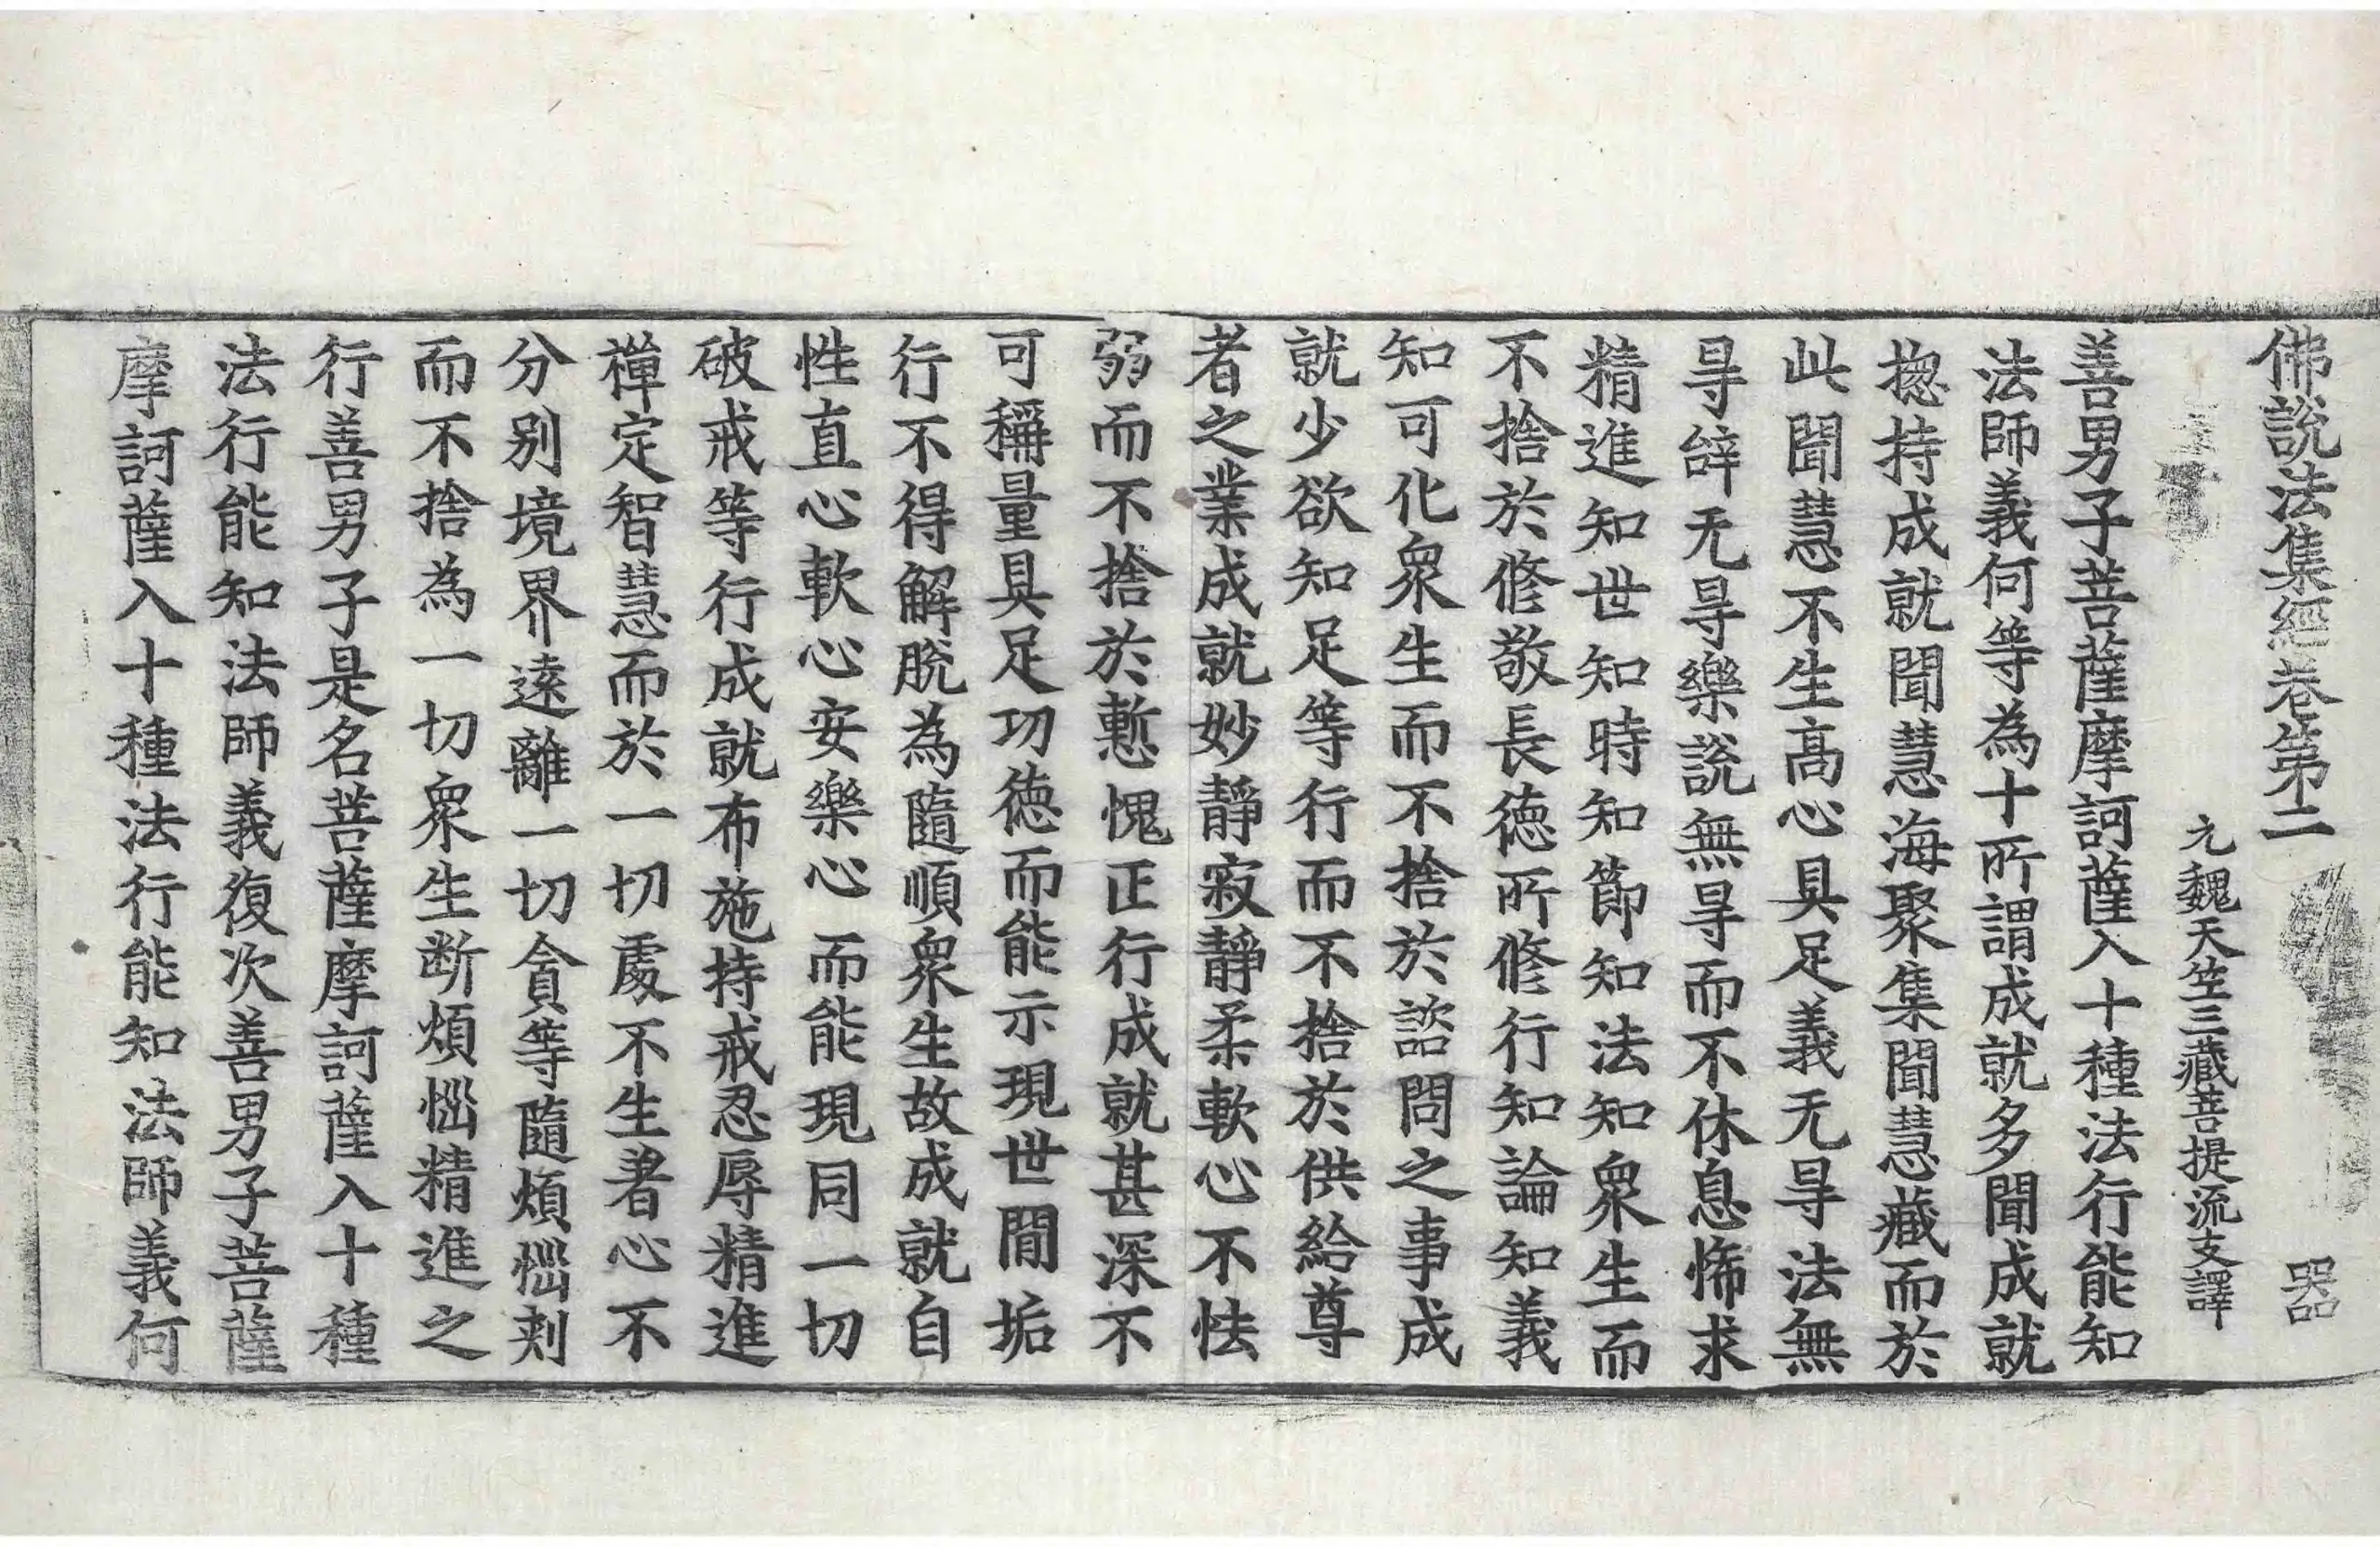 佛說法集經卷第二　器
元魏天竺三藏菩提流支譯
善男子菩薩摩訶薩入十種法行能知
法師義何等為十所謂成就多聞成就
揔持成就聞慧海聚集聞慧藏而於
此聞慧不生高心具足義无㝵法無
㝵辝无㝵樂說無㝵而不休息悕求
精進知世知時知節知法知衆生而
不捨於修敬長德所修行知論知義
知可化衆生而不捨於諮問之事成
就少欲知足等行而不捨於供給尊
者之業成就妙靜寂靜柔軟心不怯
弱而不捨於慙愧正行成就甚深不
可稱量具足功德而能示現世間垢
行不得解脫為隨順衆生故成就自
性直心軟心安樂心而能現同一切
破戒等行成就布施持戒忍辱精進
禪定智慧而於一切處不生著心不
分別境界遠離一切貪等隨煩惱刾
而不捨為一切衆生断煩惱精進之
行善男子是名菩薩摩訶薩入十種
法行能知法師義復次善男子菩薩
摩訶薩入十種法行能知法師義何